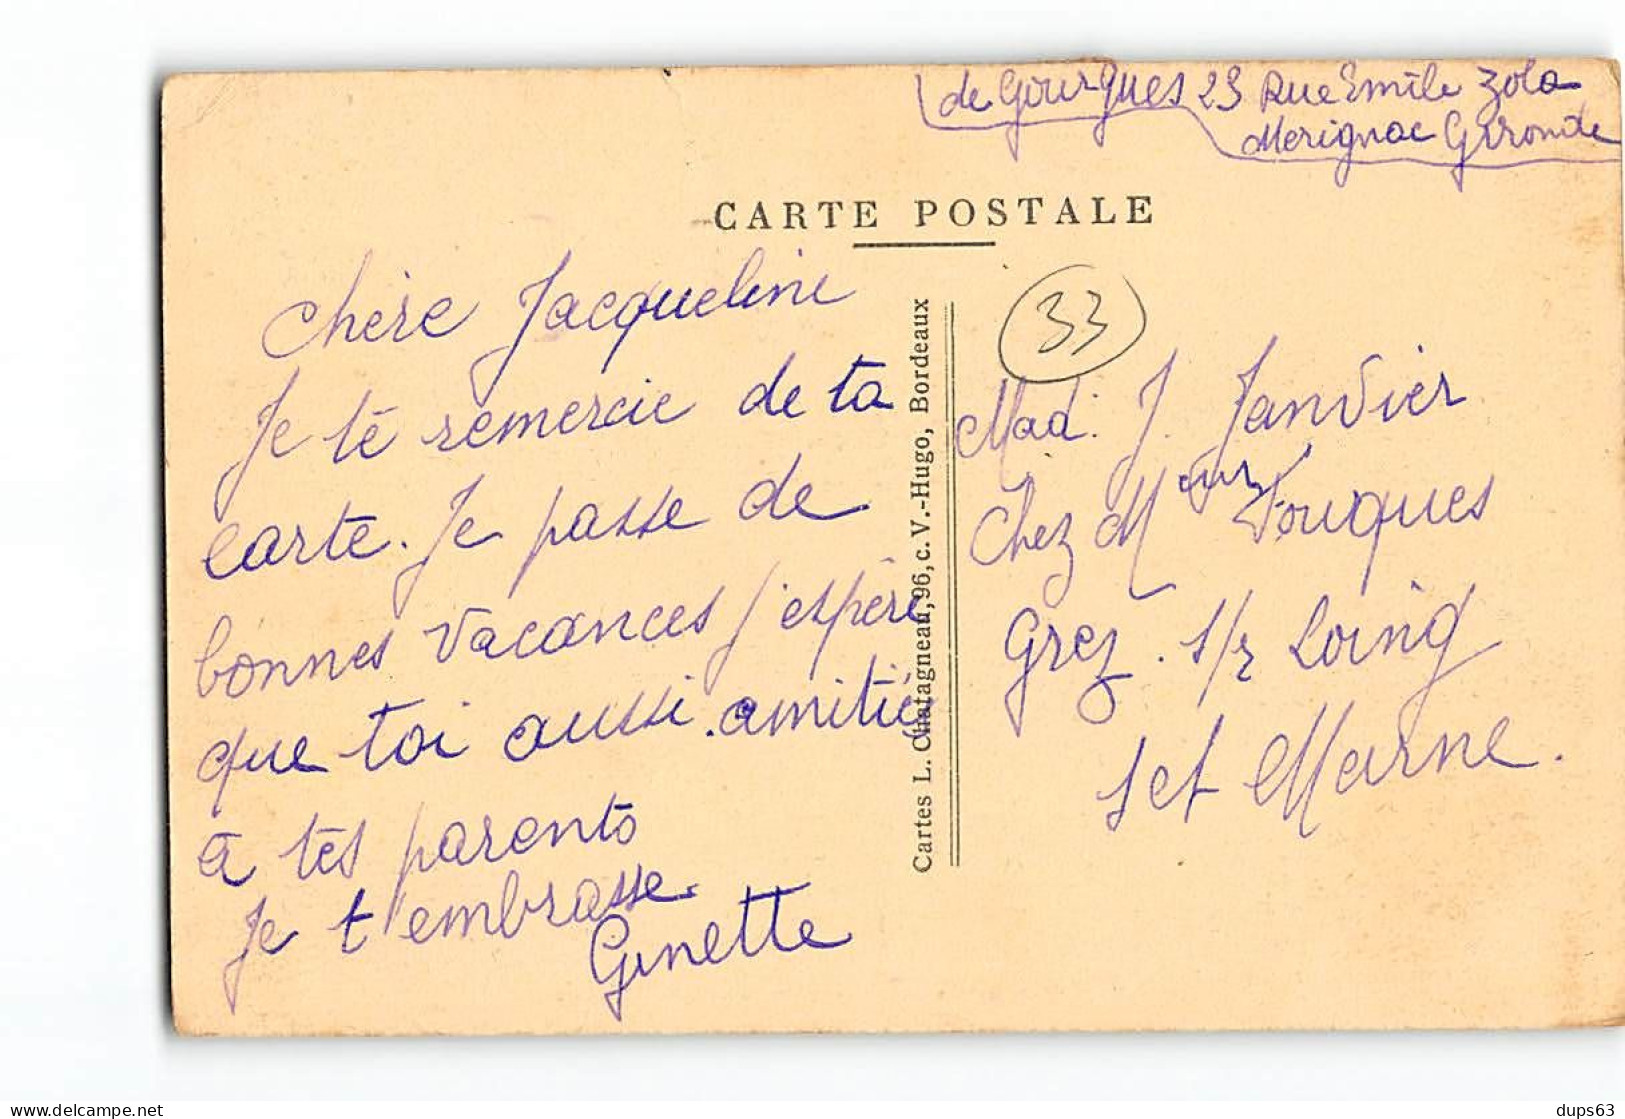 de Gourgues 23 Rue Emile Zola
Merignac Gironde
CARTE POSTALE
Chère Jacqueline
Je te remercie de ta
carte. Je passe de
bonnes vacances j'espère
que toi aussi. amitiés
à tes parents
Je t'embrasse.
Ginette
Cartes L. Chatagneau, 96, c. V.-Hugo, Bordeaux
33
Mad. J. Janvier
Chez Mour Fouques
Grez. s/r Loing
S et Marne.
delcampe.net
dups63